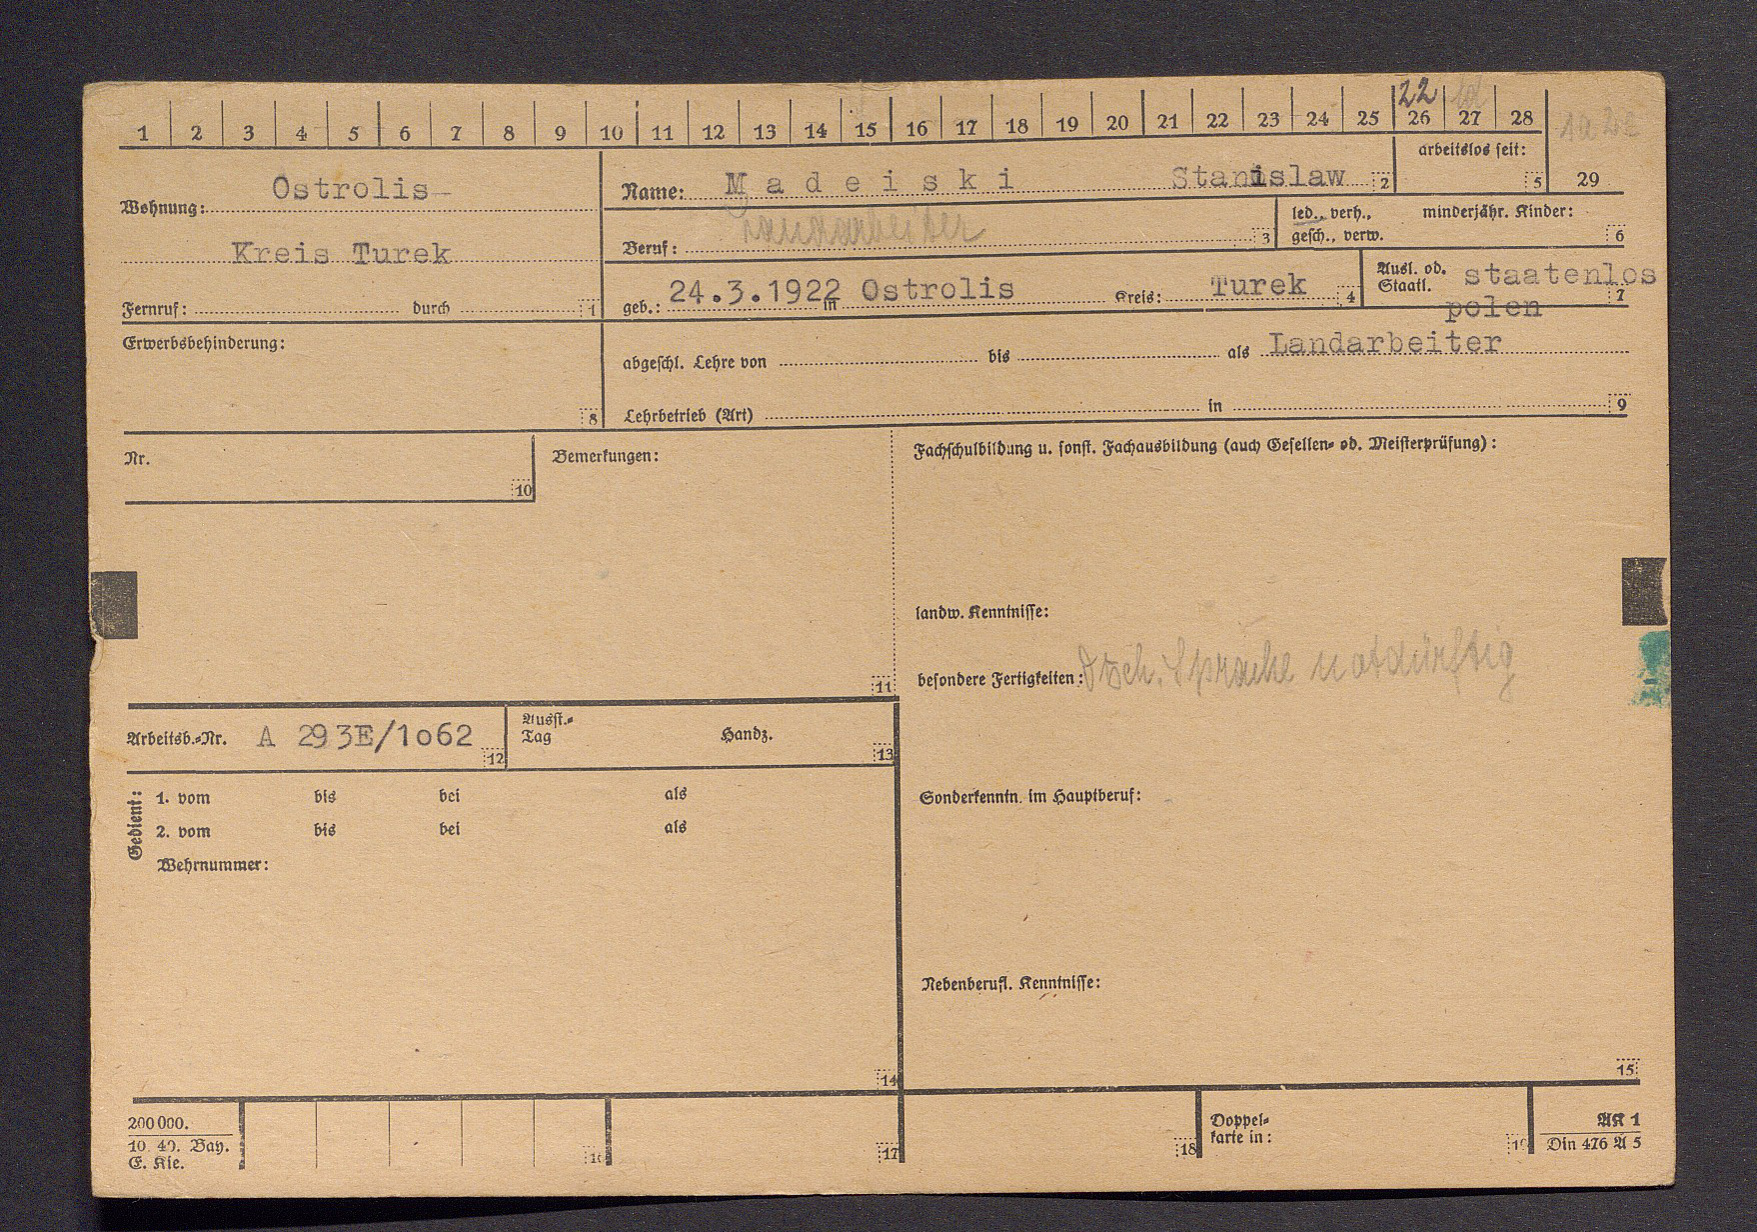 22
1 2 3 4 5 6 7 8 9 10 11 12 13 14 15 16 17 18 19 20 21 22 23 24 25 26 27 28
arbeitslos seit: 5
29
Wohnung: Ostrolis-
Kreis Turek
Fernruf: durch 1
Name: Madeiski Stanislaw 2
Beruf: Landarbeiter 3
led., verh., minderjähr. Kinder:
gesch., verw. 6
geb.: 24.3.1922 in Ostrolis Kreis: Turek 4
Ausl. od. staatenlos
Staatl. 7
polen
Erwerbsbehinderung:
8
abgeschl. Lehre von bis als Landarbeiter
Lehrbetrieb (Art) in 9
Nr.
10
Bemerkungen:
11
Fachschulbildung u. sonst. Fachausbildung (auch Gesellen- od. Meisterprüfung):
landw. Kenntnisse:
besondere Fertigkeiten: Dtsch. Sprache notdürftig
Arbeitsb.-Nr. A 293E/1o62 12
Ausst.-
Tag Handz. 13
Gedient:
1. vom bis bei als
2. vom bis bei als
Wehrnummer:
14
Sonderkenntn. im Hauptberuf:
Nebenberufl. Kenntnisse:
15
200000.
10. 40. Bay.
E. Kie.
16
17
18
Doppel-
karte in: 19
AK 1
Din 476 A 5